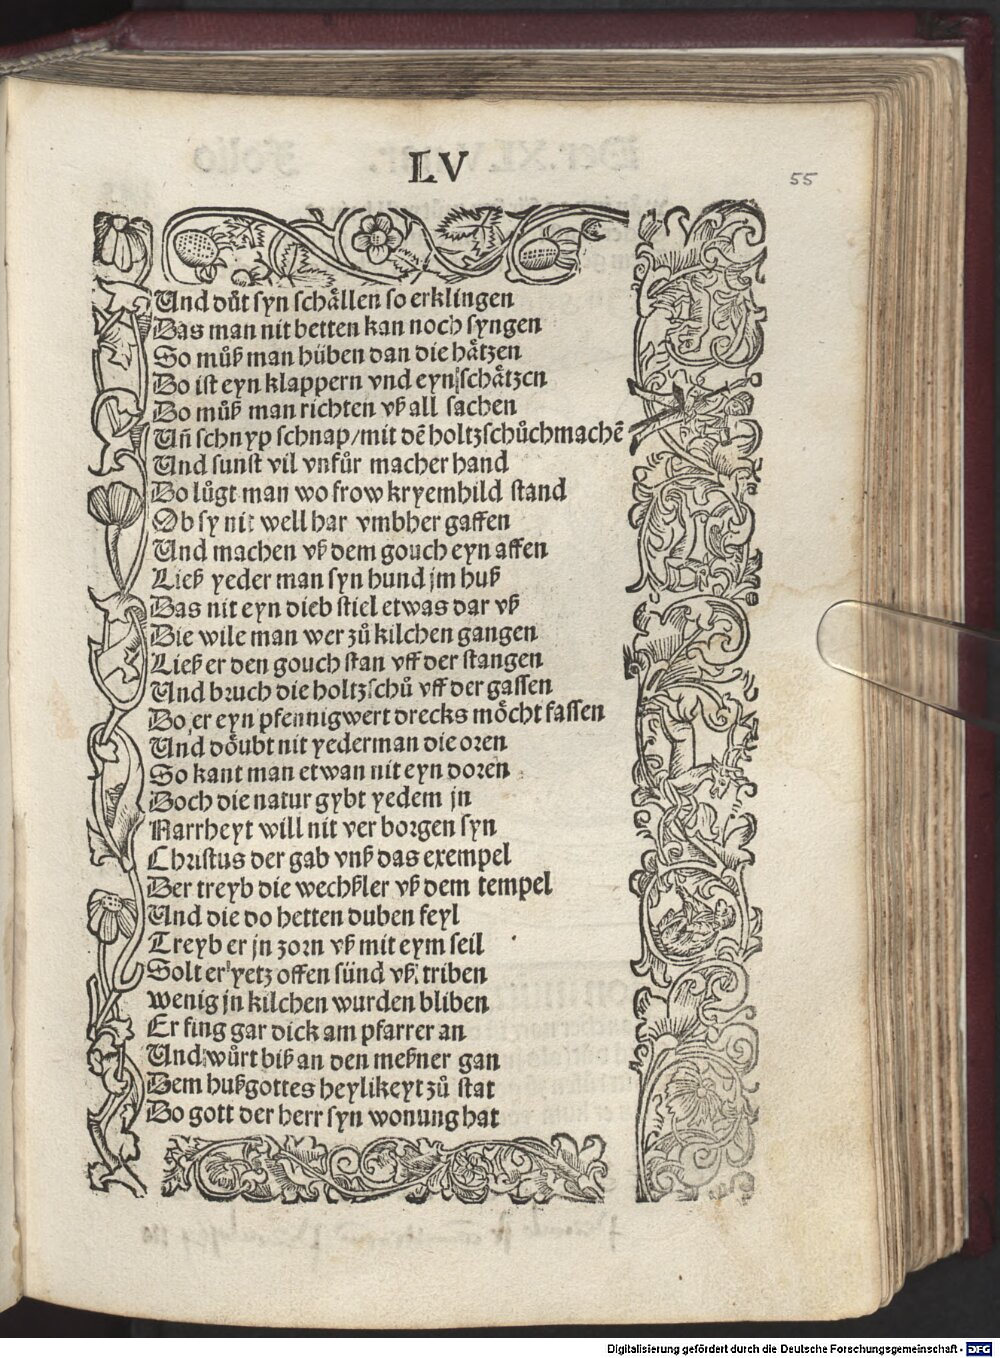 LV
55
Und důt syn schållen so erklingen
Das man nit betten kan noch syngen
So můß man hüben dan die håtzen
Do ist eyn klappern vnd eyn schåtzen
Do můß man richten vß all sachen
Uñ schnyp schnap/mit dē holtzschůchmachē
Und sunst vil vnfůr macher hand
Do lůgt man wo frow kryemhild stand
Ob sy nit well har vmbher gaffen
Und machen vß dem gouch eyn affen
Ließ yeder man syn hund jm huß
Das nit eyn dieb stiel etwas dar vß
Die wile man wer zů kilchen gangen
Ließ er den gouch stan vff der stangen
Und bruch die holtzschů vff der gassen
Do er eyn pfennigwert drecks mőcht fassen
Und dőubt nit yederman die oren
So kant man etwan nit eyn doren
Doch die natur gybt yedem jn
Narrheyt will nit verborgen syn
Christus der gab vnß das exempel
Der treyb die wechßler vß dem tempel
Und die do hetten duben feyl
Treyb er jn zorn vß mit eym seil
Solt er yetz offen sünd vß triben
wenig jn kilchen wurden bliben
Er fing gar dick am pfarrer an
Und wůrt biß an den meßner gan
Dem huß gottes heylikeyt zů stat
Do gott der herr syn wonung hat
Digitalisierung gefördert durch die Deutsche Forschungsgemeinschaft - DFG